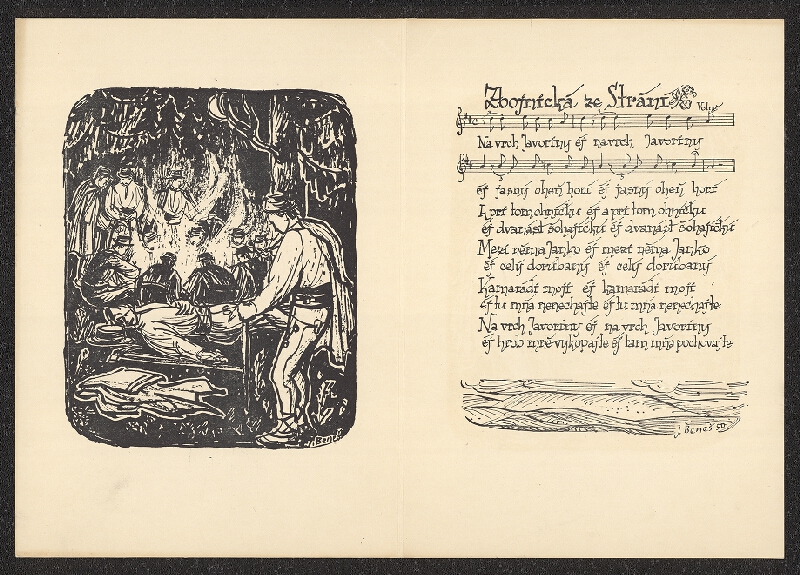 J. Beneš
Zbojnická ze Strání
Na vrch Javořiny ej na vrch Javořiny
ej jasný oheň hoří ej jasný oheň hoří
A při tom ohníčku ej a při tom ohníčku
ej dvanást šohajíčků ej dvanást šohajíčků
Mezi něma Janko ej mezi něma Janko
ej celý dorúbaný ej celý dorúbaný
Kamarádi moji ej kamarádi moji
ej tu mňa nenechajte ej tu mňa nenechajte
Na vrch Javořiny ej na vrch Javořiny
ej hrob mně vykopajte ej tam mňa pochovajte
J. Beneš 50